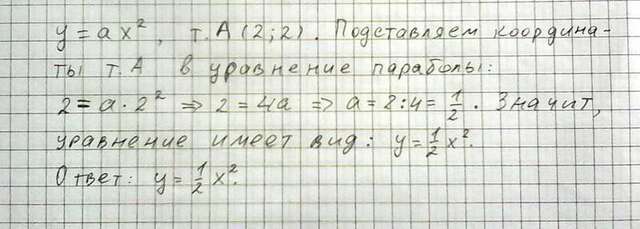 y = ax², т. A (2; 2). Подставляем координа-
ты т. A в уравнение параболы:
2 = a · 2² ⇒ 2 = 4a ⇒ a = 2 : 4 = 1/2. Значит,
уравнение имеет вид: y = 1/2 x².
Ответ: y = 1/2 x².